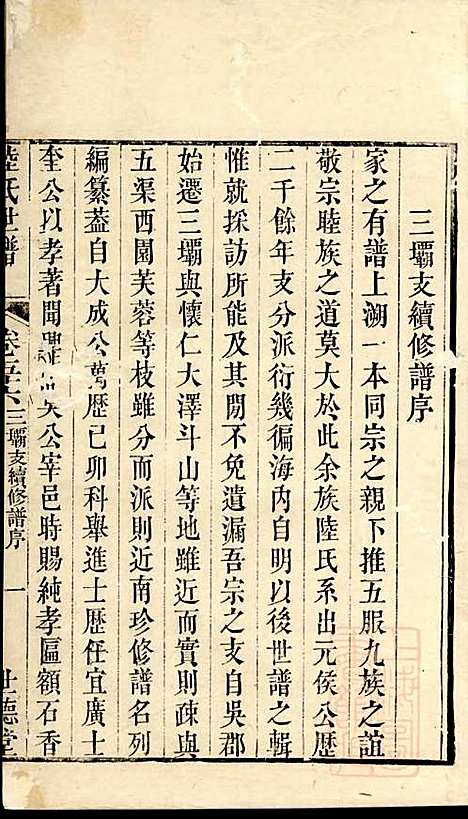 三壩支續修譜序
家之有譜上溯一本同宗之親下推五服九族之誼
敬宗睦族之道莫大於此余族陸氏系出元侯公歷
二千餘年支分派衍幾徧海內自明以後世譜之輯
惟就採訪所能及其閒不免遺漏吾宗之支自吳郡
始遷三壩與懷仁大澤斗山等地雖近而實則疎與
五渠西園芙蓉等枝雖分而派則近南珍修譜名列
編纂葢自大成公萬歷己卯科舉進士歷任宜廣士
奎公以孝著聞公宰邑時賜純孝匾額石香
陸氏世譜
卷 三壩支續修譜序 一 世德堂